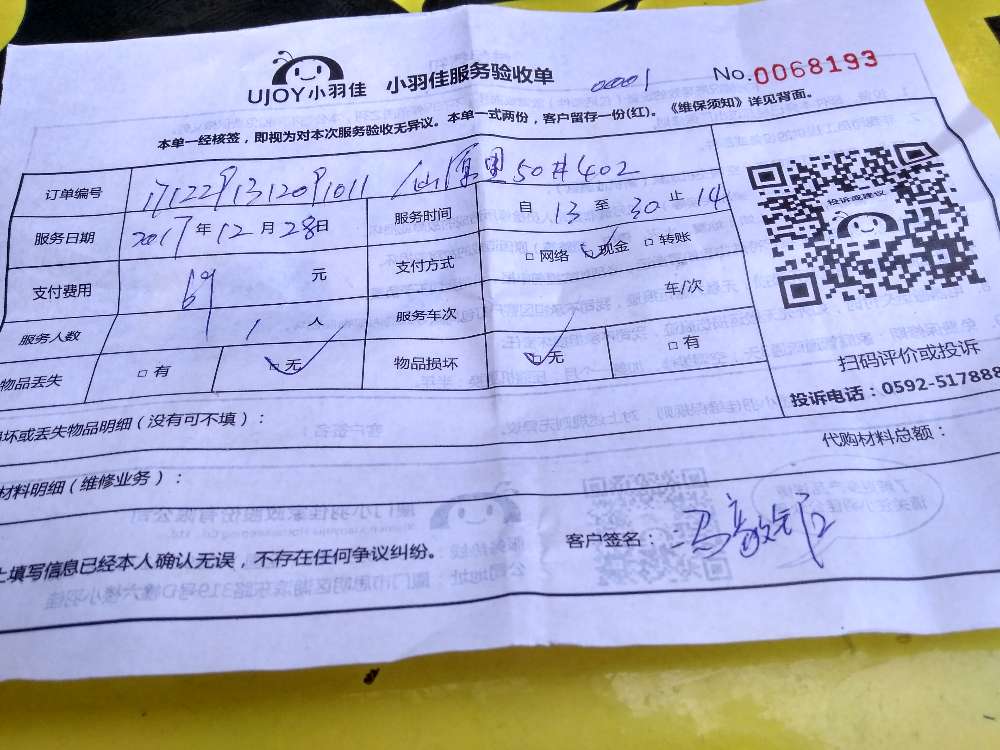 UJOY小羽佳 小羽佳服务验收单 00001 No.0068193
本单一经核签，即视为对本次服务验收无异议。本单一式两份，客户留存一份(红)。《维保须知》详见背面。
订单编号 50#402
服务日期 2017年12月28日 服务时间 自13至30止14
支付费用 元 支付方式 □网络 □现金 □转账
服务人数 1人 服务车次 车/次
物品丢失 □有 □无 物品损坏 □无 □有
投诉或建议
扫码评价或投诉
投诉电话：0592-517888
坏或丢失物品明细（没有可不填）：
代购材料总额：
材料明细（维修业务）：
填写信息已经本人确认无误，不存在任何争议纠纷。
客户签名：